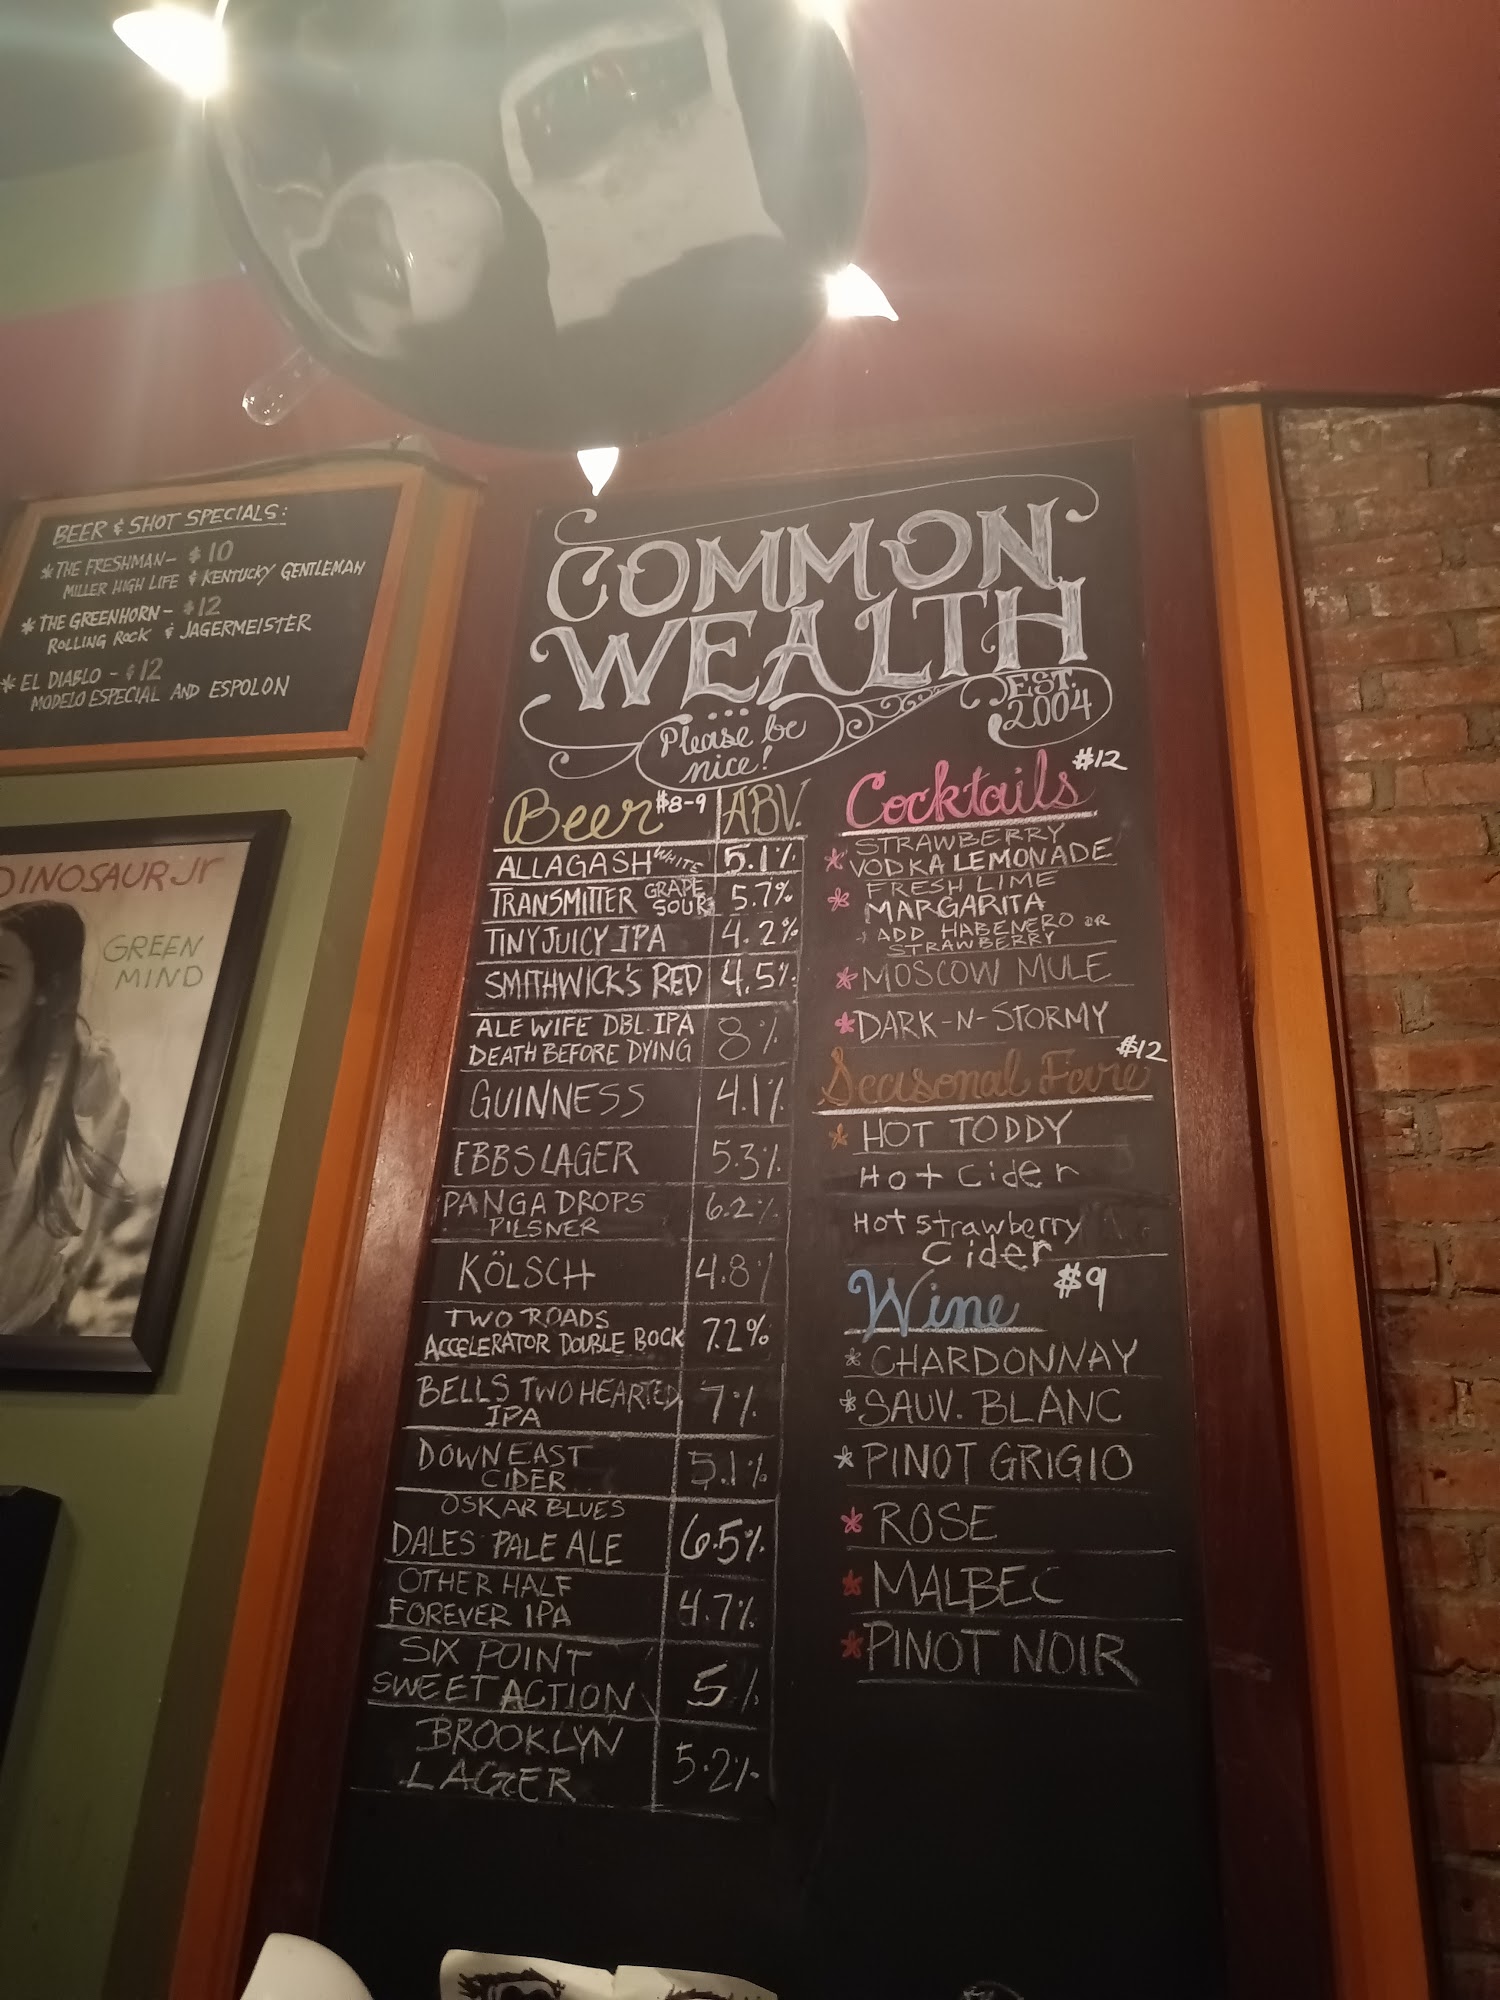 BEER & SHOT SPECIALS:
* THE FRESHMAN - $10
MILLER HIGH LIFE & KENTUCKY GENTLEMAN
* THE GREENHORN - $12
ROLLING ROCK & JAGERMEISTER
* EL DIABLO - $12
MODELO ESPECIAL AND ESPOLON
DINOSAUR Jr
GREEN
MIND
COMMON
WEALTH
EST.
2004
Please be
nice!
Beer $8-9 ABV.
ALLAGASH WHITE 5.1%
TRANSMITTER GRAPE SOUR 5.7%
TINY JUICY IPA 4.2%
SMITHWICK'S RED 4.5%
ALE WIFE DBL. IPA
DEATH BEFORE DYING 8%
GUINNESS 4.1%
EBBS LAGER 5.3%
PANGA DROPS
PILSNER 6.2%
KÖLSCH 4.8%
TWO ROADS
ACCELERATOR DOUBLE BOCK 7.2%
BELLS TWO HEARTED
IPA 7%
DOWNEAST
CIDER 5.1%
OSKAR BLUES
DALES PALE ALE 6.5%
OTHER HALF
FOREVER IPA 4.7%
SIX POINT
SWEET ACTION 5%
BROOKLYN
LAGER 5.2%
Cocktails $12
STRAWBERRY
* VODKA LEMONADE
* FRESH LIME
MARGARITA
ADD HABENERO OR
STRAWBERRY
* MOSCOW MULE
* DARK-N-STORMY
Seasonal Fare $12
* HOT TODDY
Hot Cider
Hot Strawberry
Cider
Wine $9
* CHARDONNAY
* SAUV. BLANC
* PINOT GRIGIO
* ROSE
* MALBEC
* PINOT NOIR